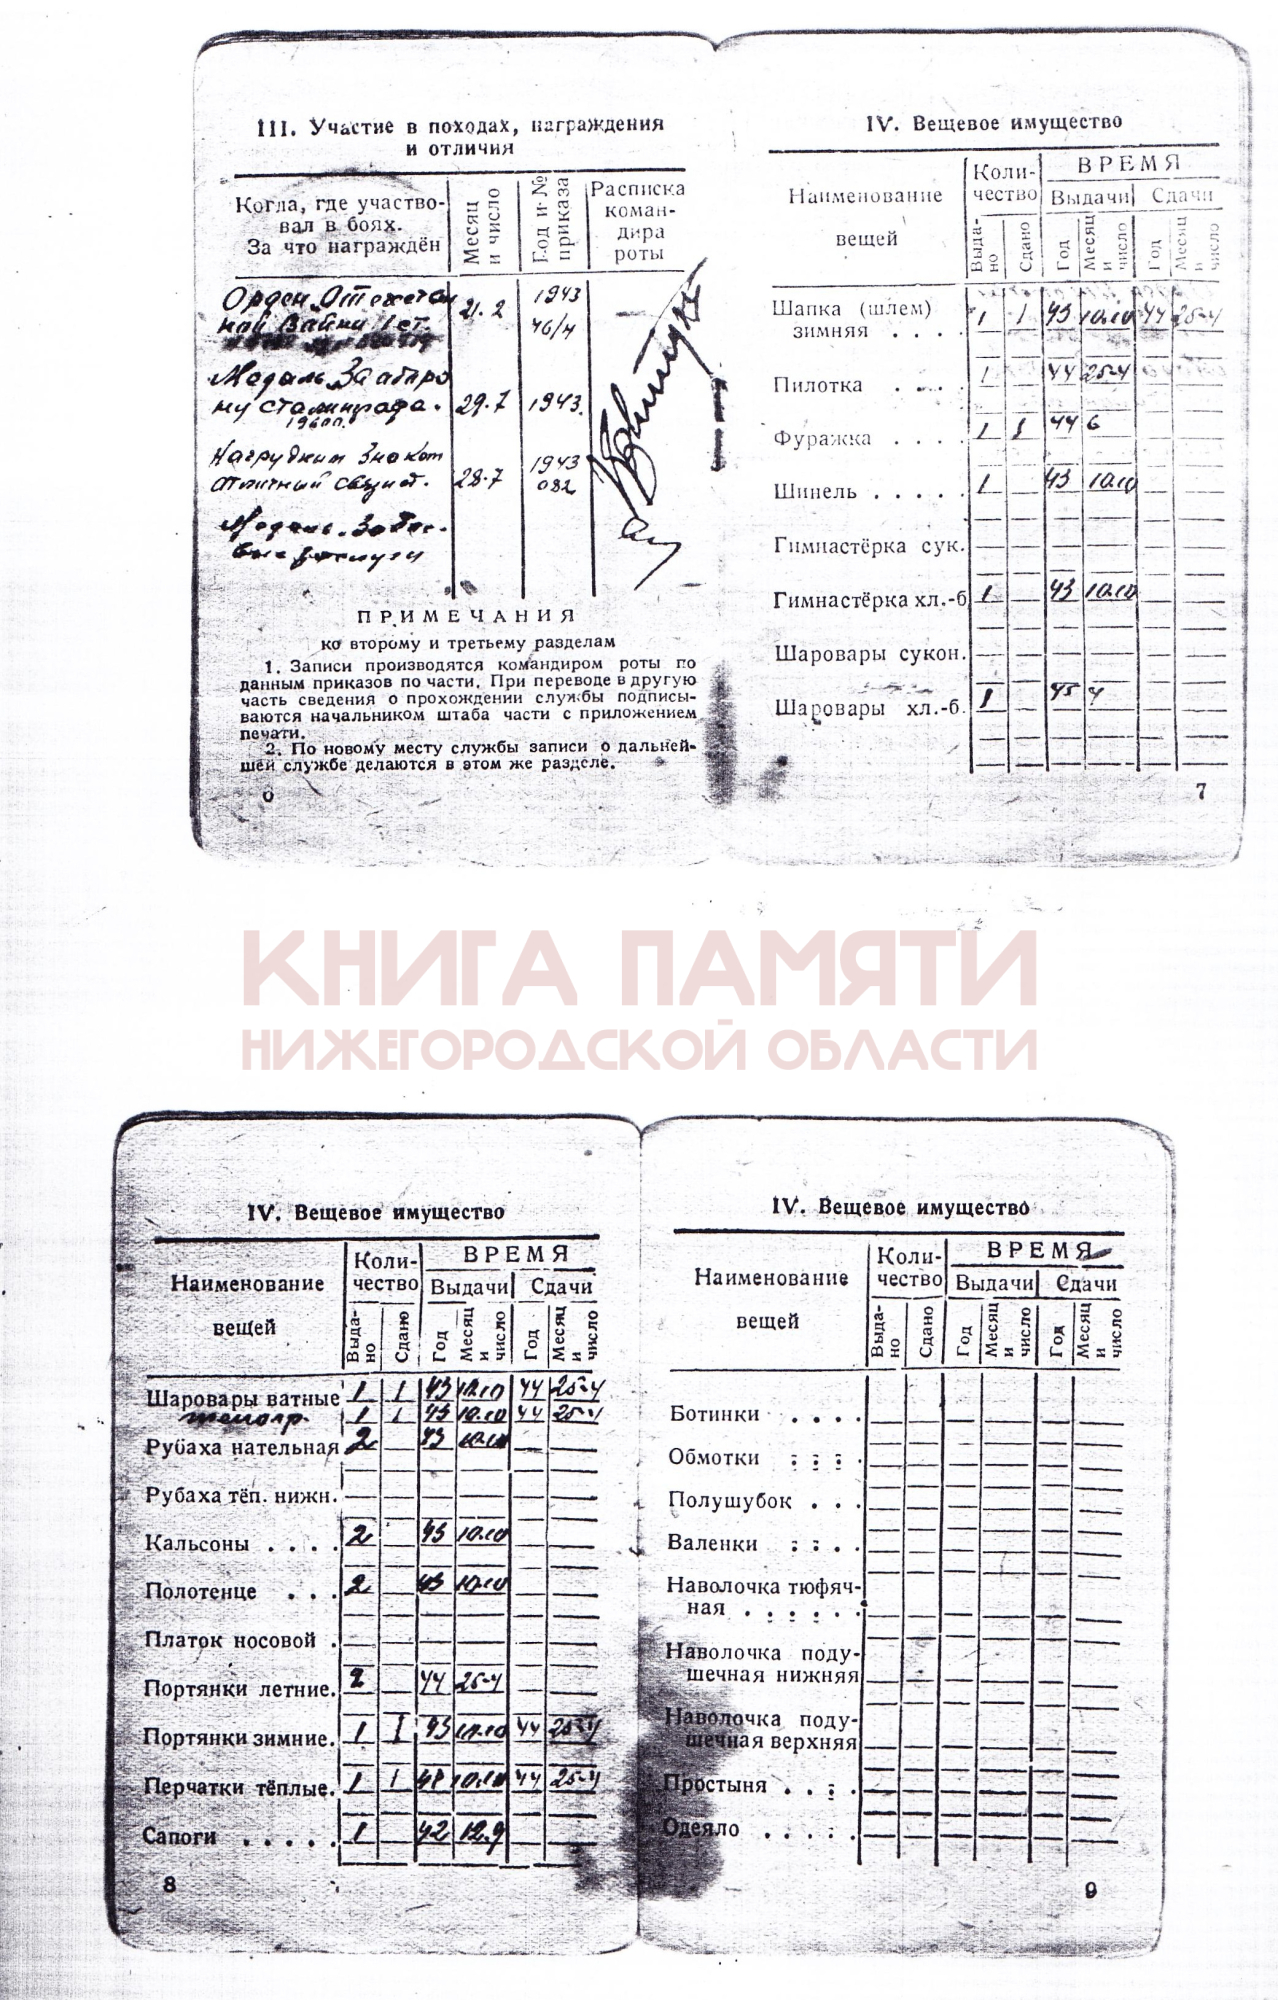 III. Участие в походах, награждения
и отличия
Когда, где участво-
вал в боях.
За что награждён
Месяц и число
Год и № приказа
Расписка
коман-
дира
роты
Орден Отечествен
ной Войны 1 ст.
21.2
1943
46/н
Медаль За оборо
ну Сталинграда.
29.7
1943.
Нагрудним знаком
отличный связист.
28.7
1943
082
Медаль. За бое-
вые заслуги
ПРИМЕЧАНИЯ
ко второму и третьему разделам
1. Записи производятся командиром роты по
данным приказов по части. При переводе в другую
часть сведения о прохождении службы подписы-
ваются начальником штаба части с приложением
печати.
2. По новому месту службы записи о дальней-
шей службе делаются в этом же разделе.
6
IV. Вещевое имущество
Наименование
вещей
Коли-
чество
ВРЕМЯ
Выдачи Сдачи
Выда-но Сдано Год Месяц и число Год Месяц и число
Шапка (шлем)
зимняя . . . . 1 1 43 10.10 44 25-4
Пилотка . . . . 1 44 25-4
Фуражка . . . . 1 1 44 6
Шинель . . . . . 1 43 10.10
Гимнастёрка сук.
Гимнастёрка хл.-б 1 43 10.10
Шаровары сукон.
Шаровары хл.-б. 1 45 4
7
КНИГА ПАМЯТИ
НИЖЕГОРОДСКОЙ ОБЛАСТИ
IV. Вещевое имущество
Наименование
вещей
Коли-
чество
ВРЕМЯ
Выдачи Сдачи
Выда-но Сдано Год Месяц и число Год Месяц и число
Шаровары ватные 1 1 43 10.10 44 25-4
1 1 43 10.10 44 25-4
Рубаха нательная 2 43 10.10
Рубаха тёп. нижн.
Кальсоны . . . . 2 43 10.10
Полотенце . . . 2 43 10.10
Платок носовой .
Портянки летние. 2 44 25-4
Портянки зимние. 1 1 43 10.10 44 25-4
Перчатки тёплые. 1 1 43 10.10 44 25-4
Сапоги . . . . . 1 42 12.9
8
IV. Вещевое имущество
Наименование
вещей
Коли-
чество
ВРЕМЯ
Выдачи Сдачи
Выда-но Сдано Год Месяц и число Год Месяц и число
Ботинки . . . .
Обмотки . . . .
Полушубок . . .
Валенки . . . .
Наволочка тюфяч-
ная . . . . . .
Наволочка поду-
шечная нижняя
Наволочка поду-
шечная верхняя
Простыня . . . .
Одеяло . . . . .
9